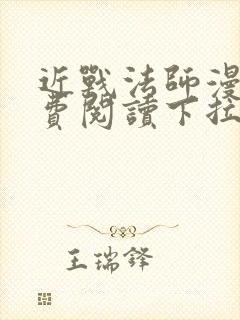 近戰法師漫
費閱讀下拉
王瑞鋒